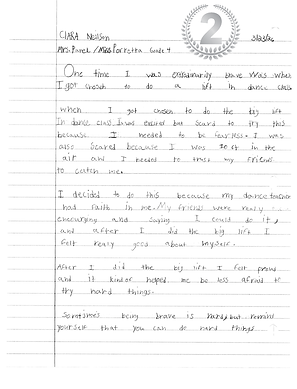 2
CLARA Neilson 5/23/26
Mrs. Pavel / Miss Porretta Grade 4
One time I was extraordinarily brave was when
I got chosen to do a lift in dance class
when I got chosen to do the big lift
In dance class I was excited but scared to try this
because I needed to be fearless. I was
also scared because I was 10 ft in the
air and I needed to trust my friends
to catch me.
I decided to do this because my dance teacher
has faith in me. My friends were really
encouraging and saying I could do it,
and after I did the big lift I
felt really good about myself.
After I did the big lift I felt proud
and it kind of helped me be less afraid to
try hard things.
Sometimes being brave is hard, but remind
yourself that you can do hard things